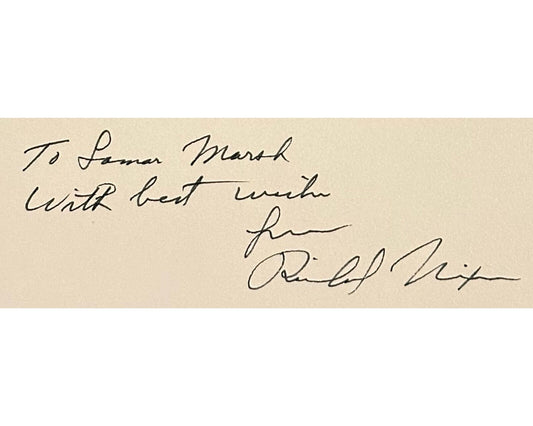 To Lamar Marsh
With best wishes
from
Richard Nixon